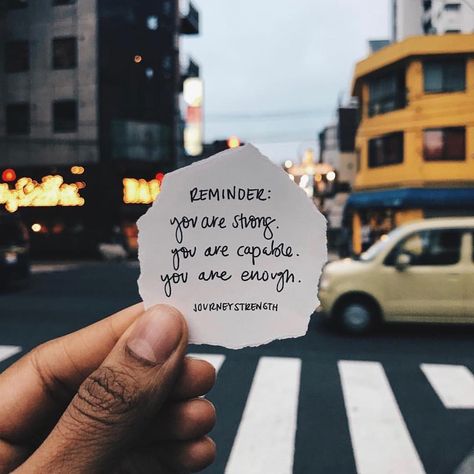 REMINDER:
you are strong.
you are capable.
you are enough.
JOURNEYSTRENGTH